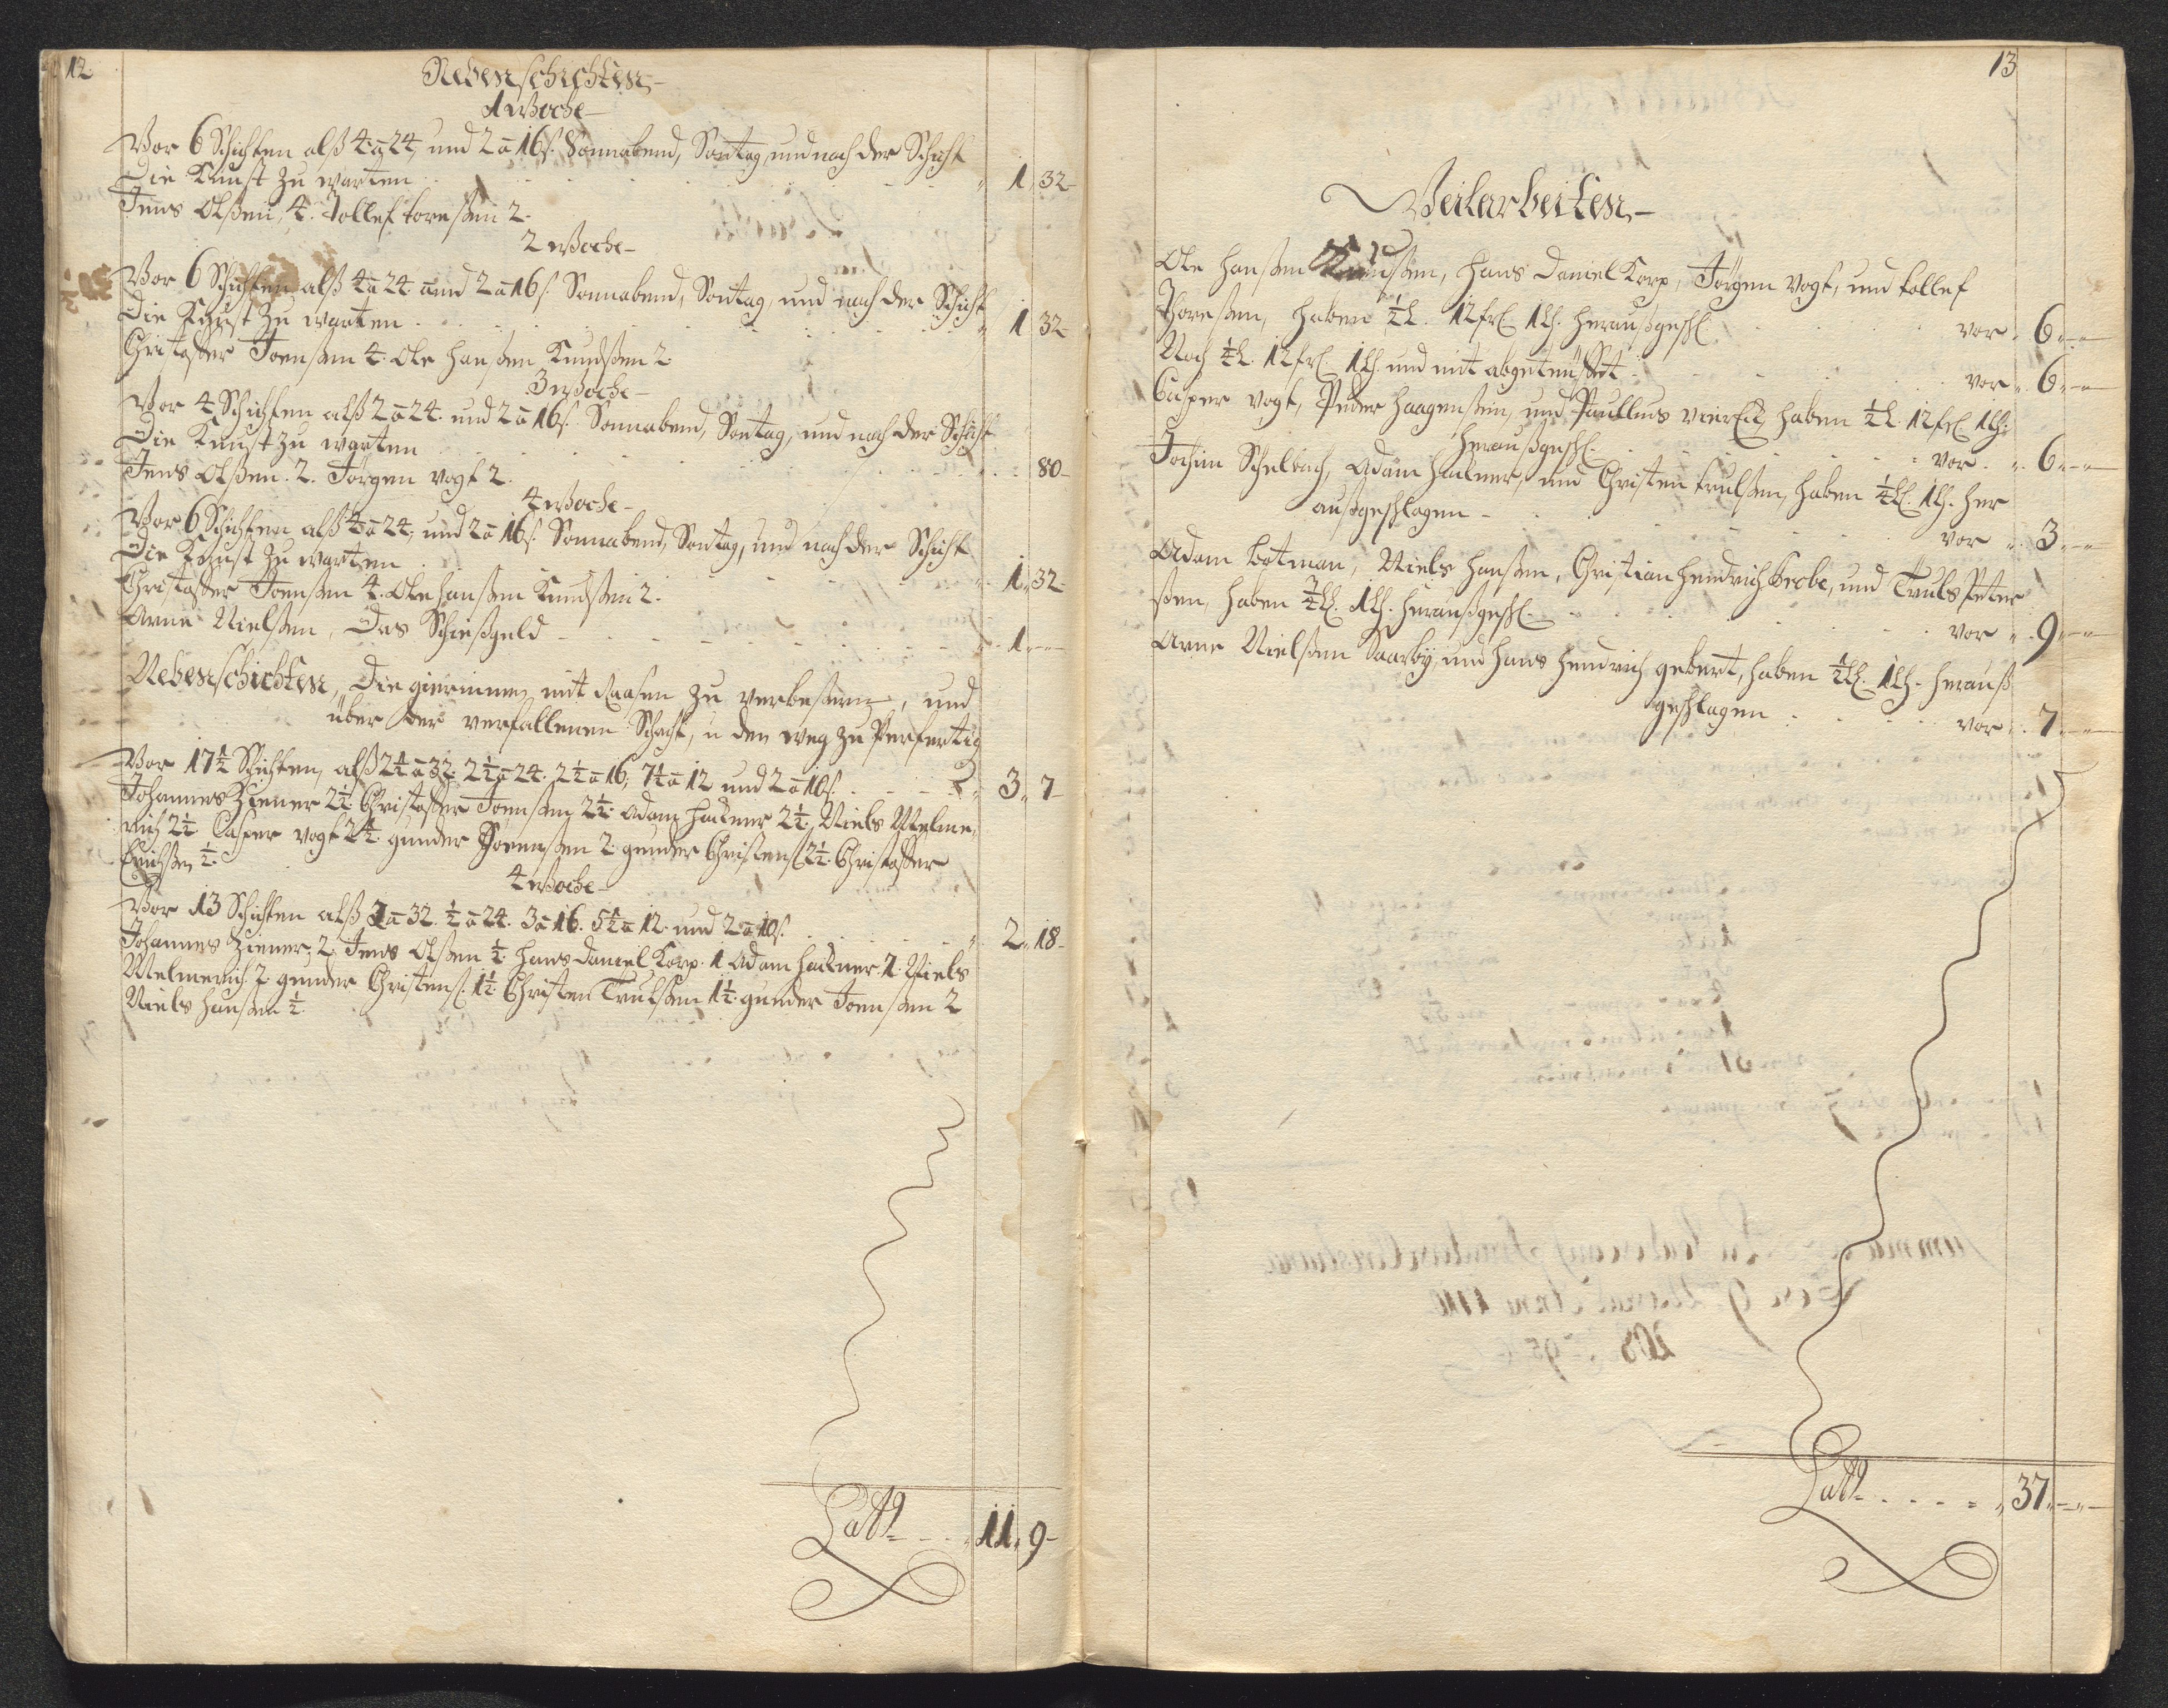 12.
Nebenschichten,-
1 Woche-
Vor 6 Schichten alß 4 a 24, und 2 a 16 s. Sonnabend, Sontag, und nach der Schicht
Die Kunst zu warten . . . . " 1, 32-
Jens Olßen, 4. Tollef Toreßen 2.
2 Woche-
Vor 6 Schichten alß 4 a 24. und 2 a 16 s. Sonnabend, Sontag, und nach der Schicht
Die Kunst zu warten . . . . " 1 32-
Christoffer Joenßen 4. Ole Hanßen Knudßen 2.
3 Woche-
Vor 4 Schichten alß 2 a 24. und 2 a 16 s. Sonnabend, Sontag, und nach der Schicht
Die Kunst zu warten . . . . 80-
Jens Olßen. 2. Jörgen Vogt 2.
4 Woche-
Vor 6 Schichten alß 4 a 24, und 2 a 16 s. Sonnabend, Sontag, und nach der Schicht
Die Kunst zu warten . . . . " 1, 32-
Christoffer Joenßen 4. Ole Hanßen Knudßen 2.
Arne Nielßen, Das Schießgeld - - - - " 1 - -
Nebenschichten, Die mit Raasen zu verbeßern, und
über der verfallenen Schacht, u den weg zu Perfertig
Vor 17½ Schichten, alß 2½ a 32. 2½ a 24. 2½ a 16, 7½ a 12 und 2 a 10 s. . . . 3, 7-
Johannes Ziener 2½ Christoffer Joenßen 2½. Adam Hackner 2½. Niels Melme,
rich 2½ Casper Vogt 2½. gunder Joenßen 2. gunder Christenß 2½. Christoffer
Erichßen ½.
4 Woche-
Vor 13 Schichten alß 2 a 32. ½ a 24. 3 a 16. 5½ a 12. und 2 a 10 s. . . . . 2, 18-
Johannes Ziener, 2. Jens Olßen ½. Hans Daniel Korp. 1 Adam Hackner. 2. Niels
Melmerich. 2. gunder Christenß. 1½. Christen Trulßen 1½. gunder Joenßen 2
Niels Hanßen ½.
Latt - - - " 11, 9-
13
Veilarbeiten,-
Ole Hanßen Knudßen, Hans Daniel Korp, Jörgen Vogt, und Tollef
Thoreßen, haben herausgeschl. . . . vor " 6 - -
Noch und mit abgeteuffet . . . vor " 6 - -
Casper Vogt, Peder Haagenßen, und Paullus haben
heraußgeschl. . . . vor " 6 - -
Jochim Schelbach, Adam Hackner, und Christen Trulßen, haben her
außgeschlagen - . . . vor " 3 - -
Adam Botman, Niels Hanßen, Christian Hendrich Krebe, und Truls Peter
ßen, haben heraußgeschl. . . . vor " 9 - -
Arne Nielßen Saarby, und Hans Hendrich gebert, haben herauß
geschlagen . . . . vor . 7 - -
Latt - . . . . " 37 - -